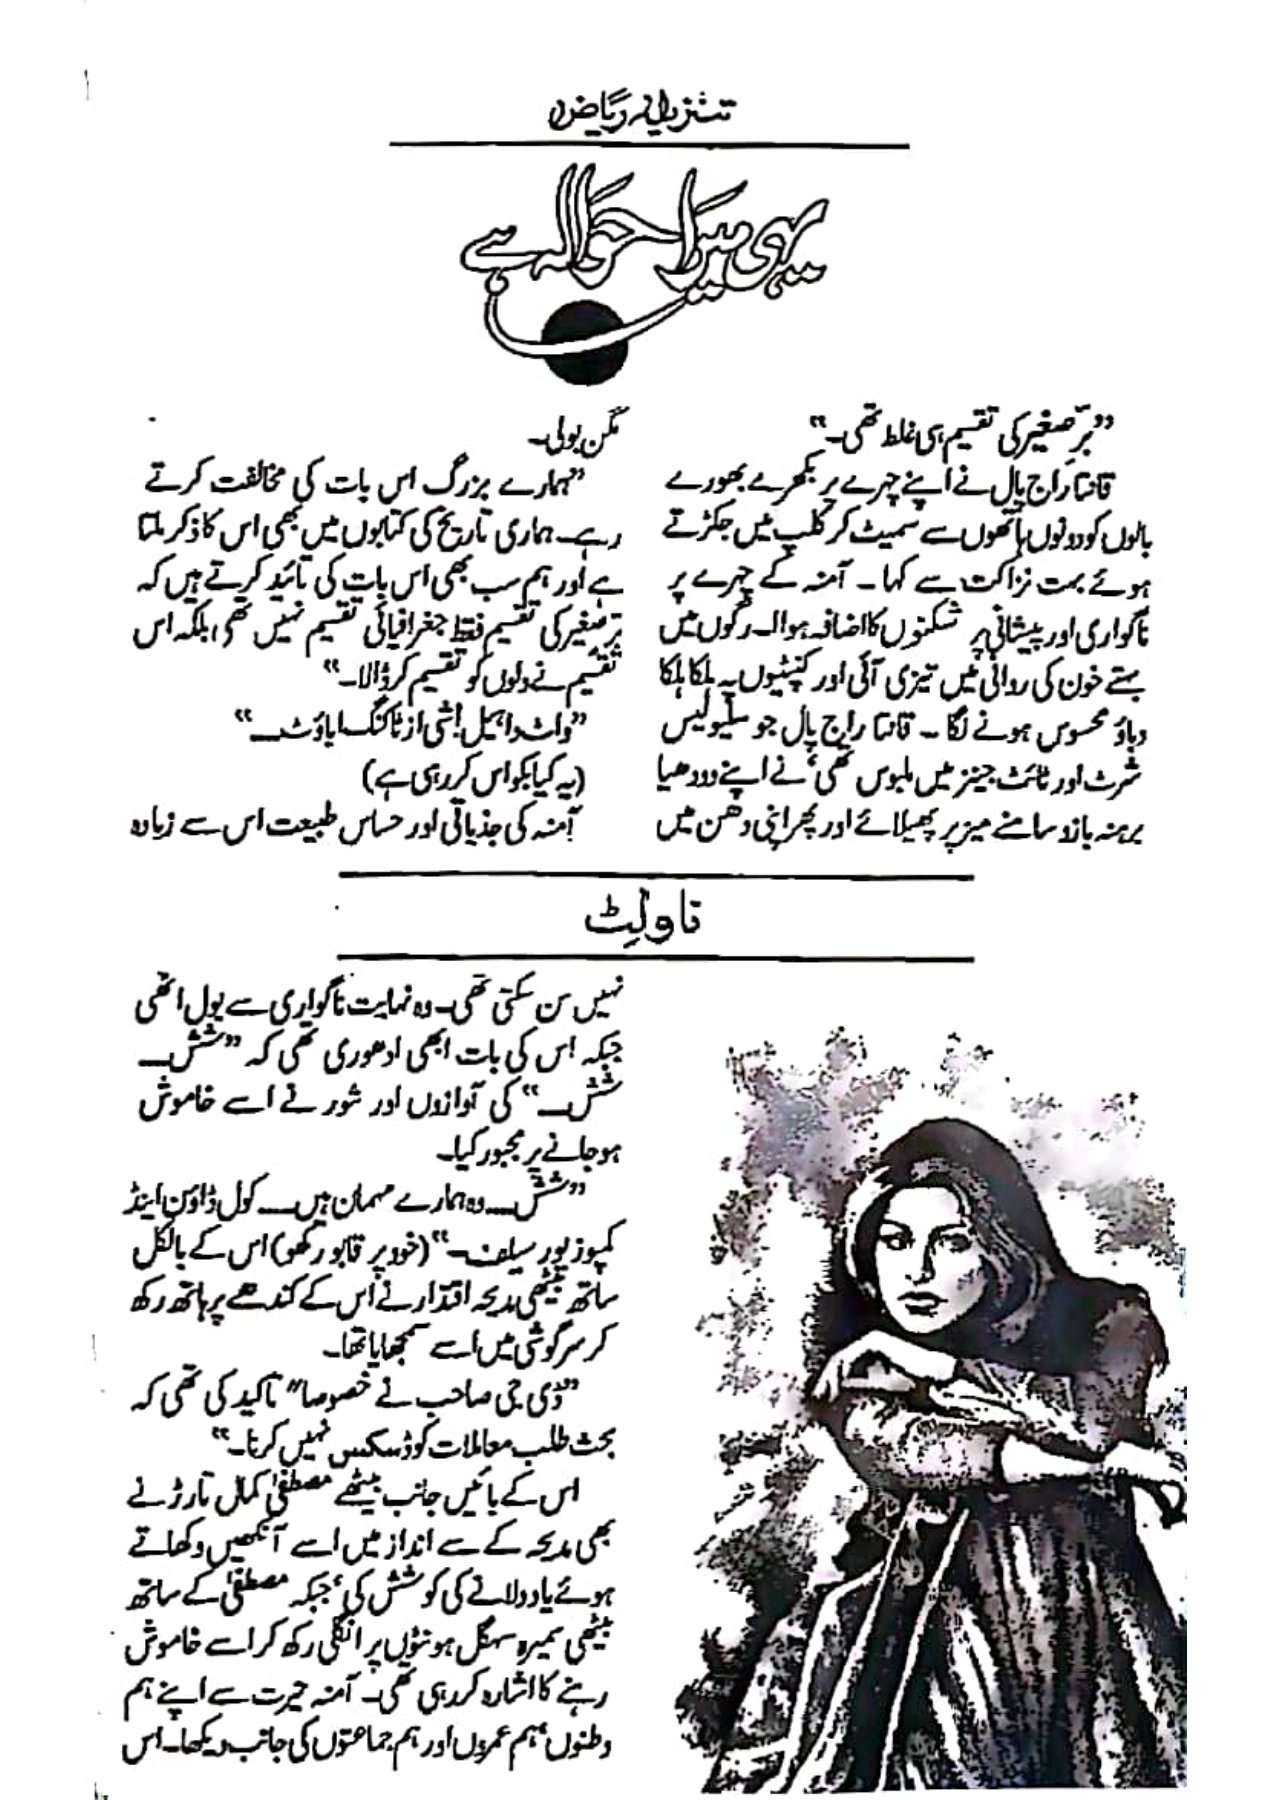 تنزیلہ ریاض
یہی میرا حوالہ ہے
”برِّصغیر کی تقسیم ہی غلط تھی۔“
قانتا راج پال نے اپنے چہرے پر بکھرے بھورے
بالوں کو دونوں ہاتھوں سے سمیٹ کر کلپ میں جکڑتے
ہوئے بہت نزاکت سے کہا۔ آمنہ کے چہرے پر
ناگواری اور پیشانی پر شکنوں کا اضافہ ہوا۔ رگوں میں
بہتے خون کی روانی میں تیزی آئی اور کنپٹیوں پہ ہلکا ہلکا
دباؤ محسوس ہونے لگا۔ قانتا راج پال جو سلیولیس
شرٹ اور ٹائٹ جینز میں ملبوس تھی‘ نے اپنے دودھیا
برہنہ بازو سامنے میز پر پھیلائے اور پھر اپنی دھن میں
مگن بولی۔
”ہمارے بزرگ اس بات کی مخالفت کرتے
رہے۔ ہماری تاریخ کی کتابوں میں بھی اس کا ذکر ملتا
ہے اور ہم سب بھی اس بات کی تائید کرتے ہیں کہ
برِّصغیر کی تقسیم فقط جغرافیائی تقسیم نہیں تھی‘ بلکہ اس
تقسیم نے دلوں کو تقسیم کر ڈالا۔“
”واٹ دا ہیل اشی از ٹاکنگ اباؤٹ۔“
(یہ کیا بکواس کر رہی ہے)
آمنہ کی جذباتی اور حساس طبیعت اس سے زیادہ
ناولٹ
نہیں سن سکتی تھی۔ وہ نہایت ناگواری سے بول اٹھی
جبکہ اس کی بات ابھی ادھوری تھی کہ ”شش۔
شش۔“ کی آوازوں اور شور نے اسے خاموش
ہو جانے پر مجبور کیا۔
”شش۔ وہ ہمارے مہمان ہیں۔ کول ڈاؤن اینڈ
کمپوز یور سیلف۔“ (خود پر قابو رکھو) اس کے بالکل
ساتھ بیٹھی مدیحہ اقتدار نے اس کے کندھے پر ہاتھ رکھ
کر سرگوشی میں اسے سمجھایا تھا۔
”ڈی جی صاحب نے خصوصا″ تاکید کی تھی کہ
بحث طلب معاملات کو ڈسکس نہیں کرنا۔“
اس کے بائیں جانب بیٹھے مصطفیٰ کمال تارڑ نے
بھی مدیحہ کے سے انداز میں اسے آنکھیں دکھاتے
ہوئے یاد دلانے کی کوشش کی‘ جبکہ مصطفیٰ کے ساتھ
بیٹھی سمیرہ سہگل ہونٹوں پر انگلی رکھ کر اسے خاموش
رہنے کا اشارہ کر رہی تھی۔ آمنہ حیرت سے اپنے ہم
وطنوں‘ ہم عمروں اور ہم جماعتوں کی جانب دیکھا۔ اس